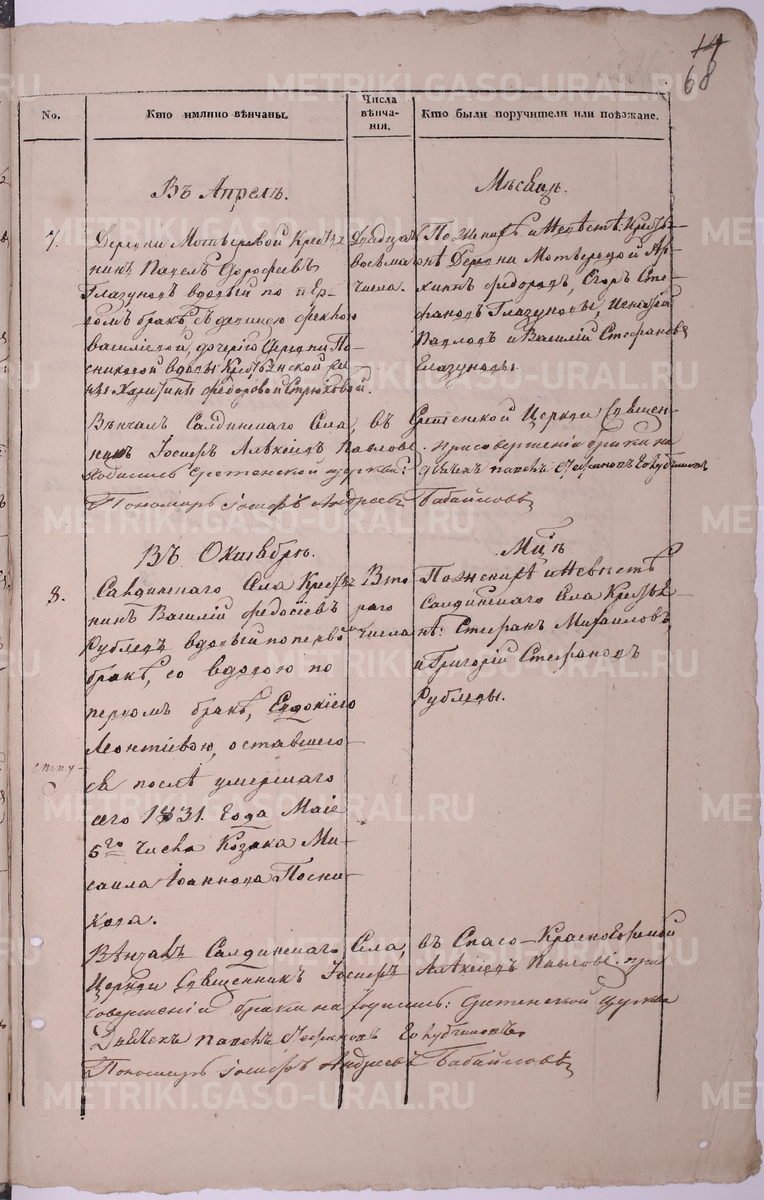 14
68
No.
Кто имянно вѣнчаны.
Числа вѣнча-
нія.
Кто были поручители или поѣзжане.
Въ Апрелѣ.
Мѣсяцѣ.
7.
Деревни Мотыревой Крестья-
нинъ Павелъ Дорофеевъ
Глазуновъ вдовый по пер-
вомъ бракѣ, съ девицею Феклою
Василіевой, дочерію Деревни По-
сниковой вдовы Крестьянской же-
Харитины Федоровой Стрюковой.
Двадца
восьма
числа.
По Женихѣ и Невѣстѣ: Крестья-
нѣ Деревни Мотыревой
Федоровъ, Егоръ Сте-
фановъ Глазуновы, Игнатій
Павловъ и Василій Стефановъ
Глазуновы.
Вѣнчалъ Салдинскаго Села, въ Сретенской Церкви Священ-
никъ Іосифъ Алѣксіевъ Павловъ. При совершеніи брака на-
ходились Сретенской церкви:
дьячекъ Павелъ Стефановъ Голубчиковъ
Пономарь Іосифъ Андреевъ Бабайловъ
Въ Октябрѣ.
М-цѣ
8.
Салдинскаго Села Крестья-
нинъ Василій Федосіевъ
Рублевъ вдовый по первомъ
бракѣ, со вдовою по
первомъ бракѣ, Евдокіею
Леонтіевою, оставшею-
ся послѣ умершаго
сего 1831. Года Маіе
5го Числа Козака Ми-
хаила Іоаннова Посни-
кова.
Вто
раго
числа
По женихѣ и Невѣстѣ
Салдинскаго Села Крестья-
нѣ: Стефанъ Михаиловъ,
и Григорій Стефановъ
Рублевы.
Вѣнчалъ Салдинскаго Села, въ Спасо-Красногорской
Церкви Священникъ Іосифъ Алѣксіевъ Павловъ. При
совершеніи брака находились: Сретенской церкви
Дьячекъ Павелъ Стефановъ Голубчиковъ
Пономарь Іосифъ Андреевъ Бабайловъ
METRIKI.GASO-URAL.RU